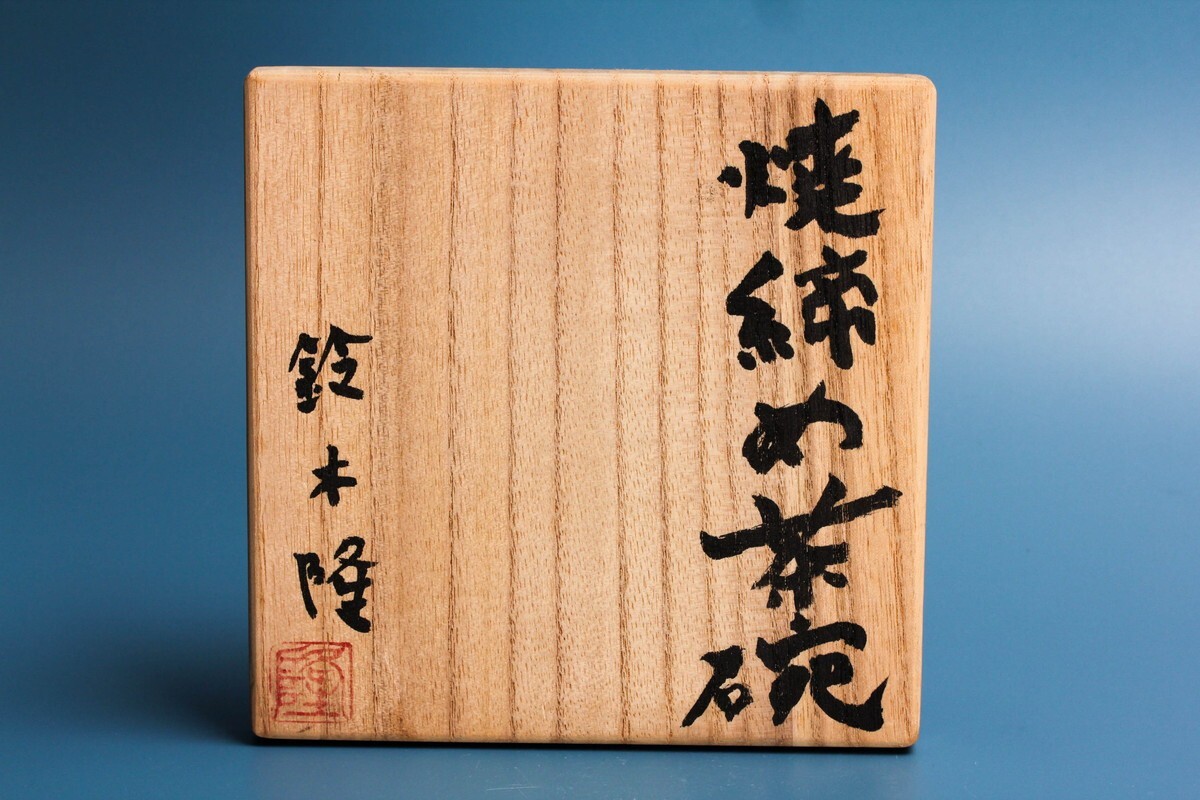 焼締め茶碗
鈴木隆
隆